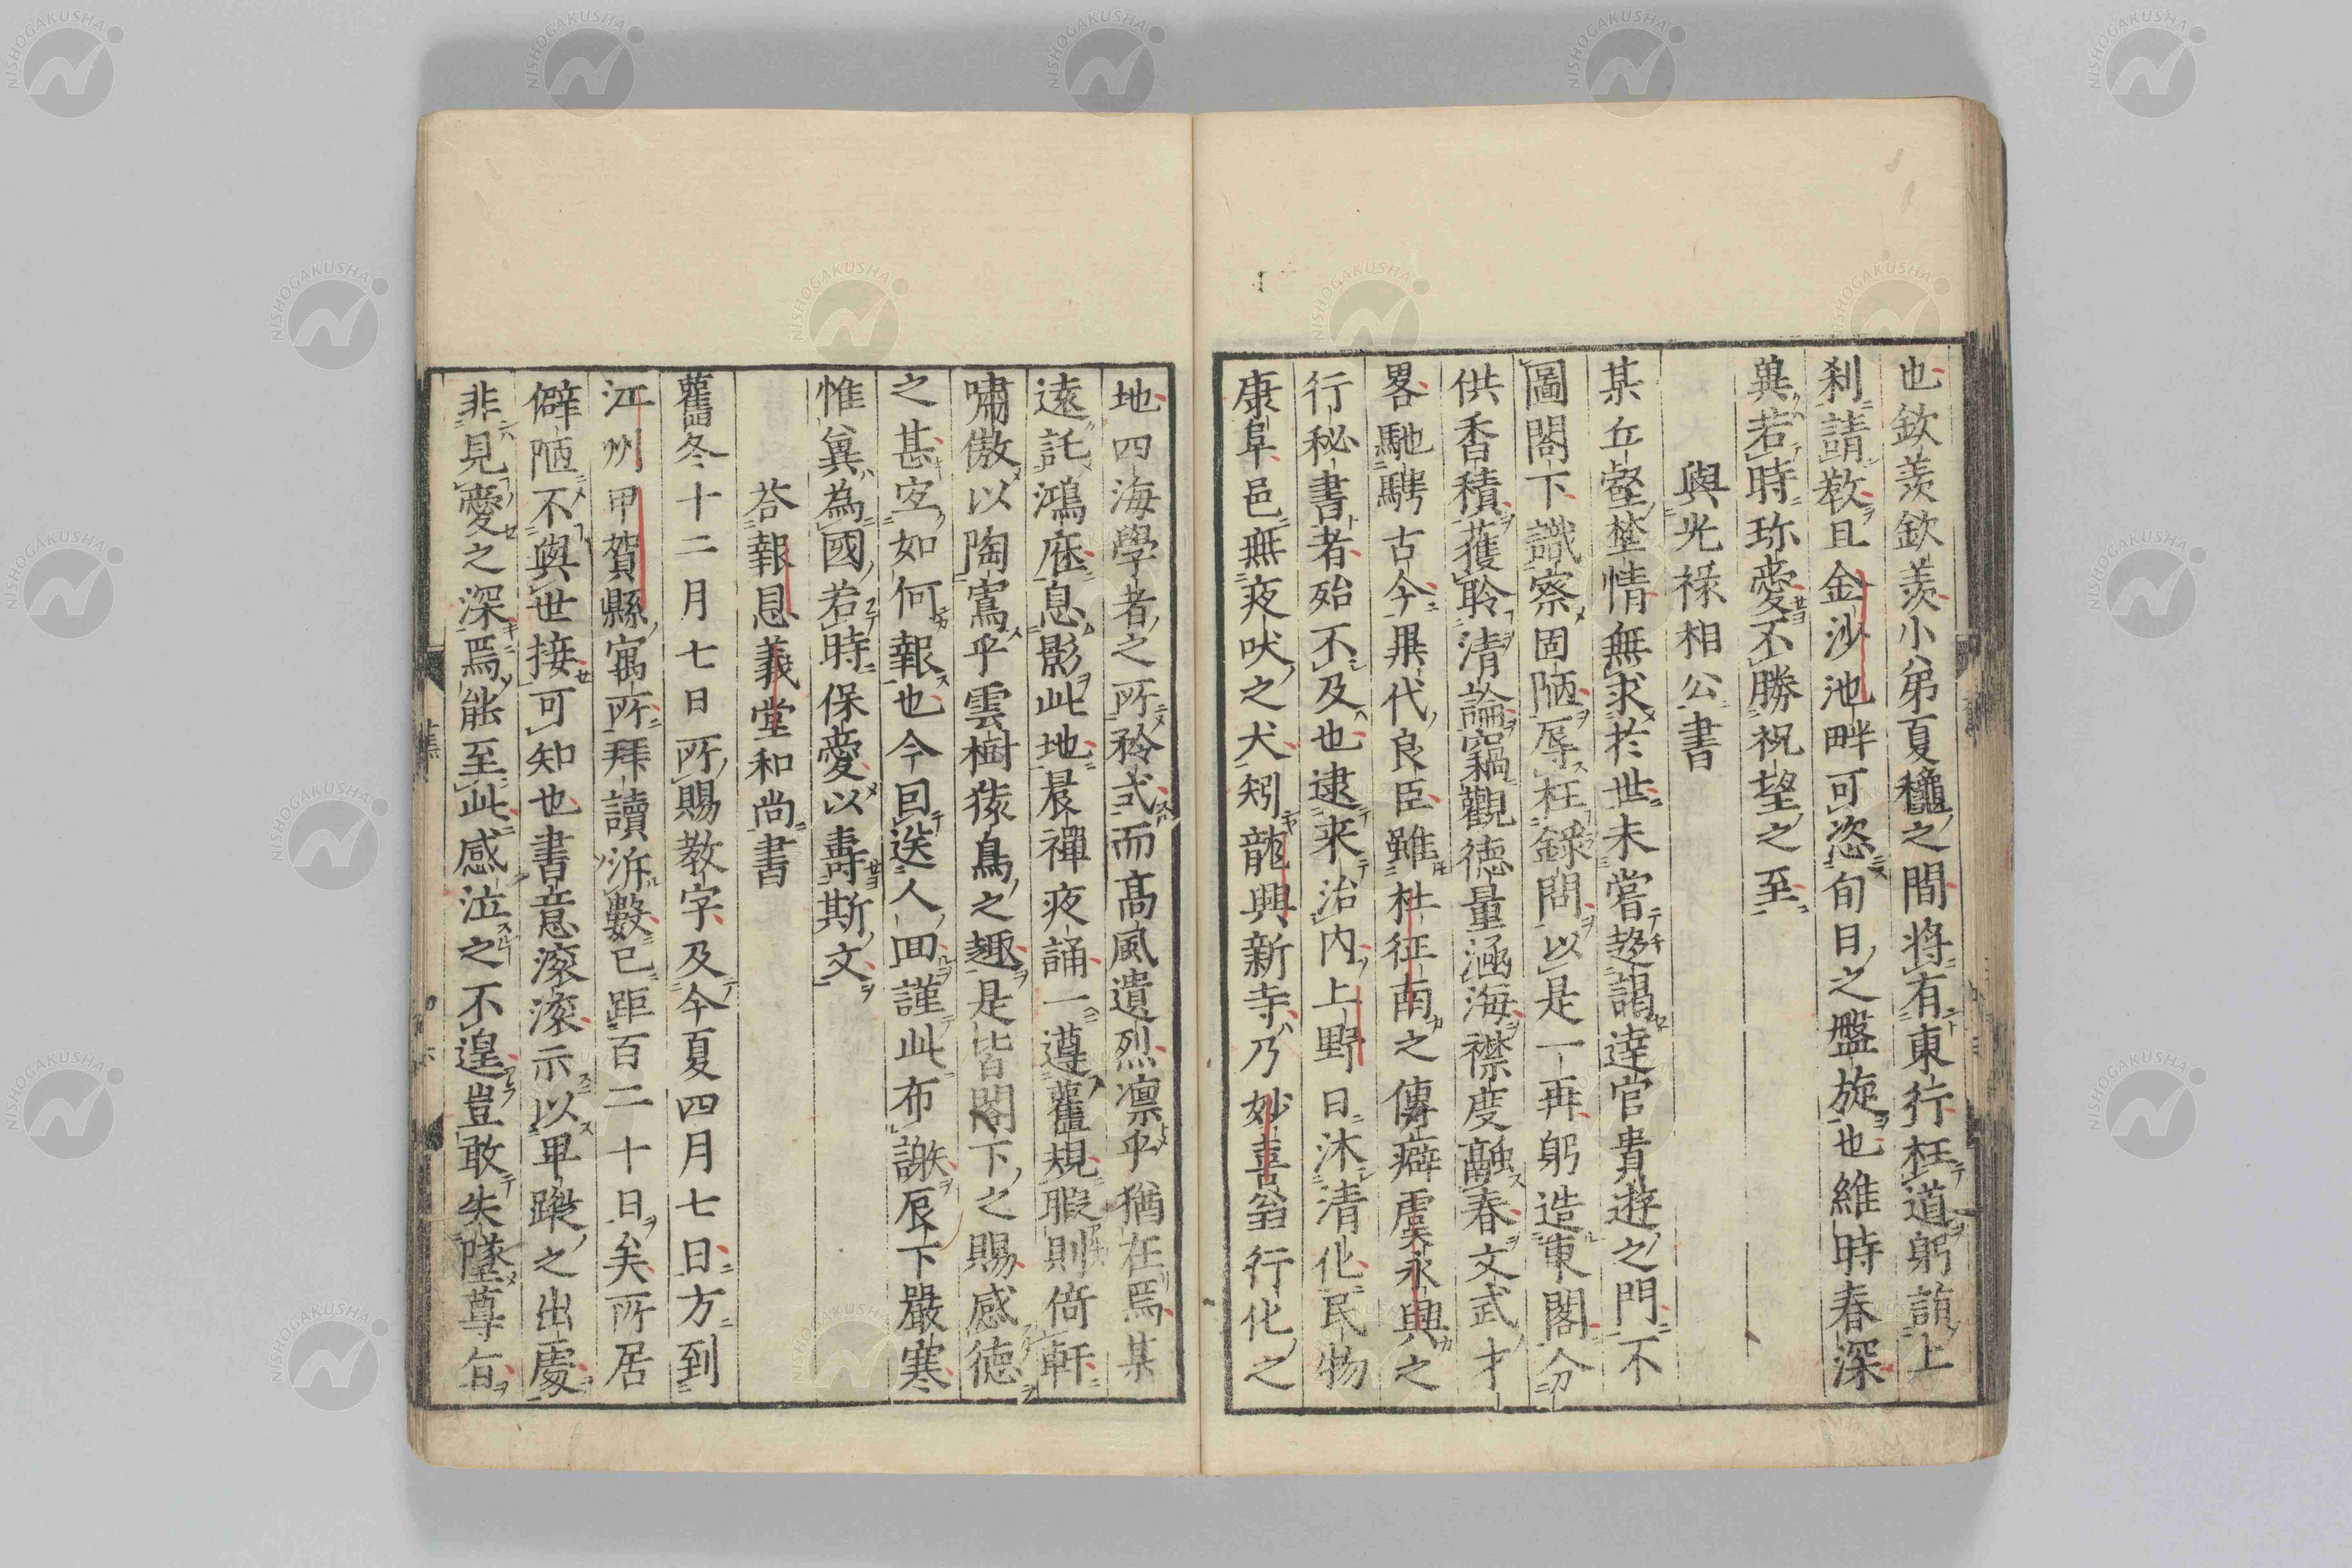 也欽羨欽羨小弟夏穐之間將有東行枉道躬詣上
刹請教且金沙池畔可恣旬日之盤旋也維時春深
兾若時珎愛不勝祝望之至
與光祿相公書
某丘壑埜情無求於世未嘗趍謁達官貴遊之門不
圖閤下識察固陋辱枉錄問以是一再躬造東閣分
供香積獲聆清論竊觀德量涵海襟度融春文武才
畧馳騁古今異代良臣雖杜征南之傳癖虞永興之
行秘書者殆不及也逮来治内上野日沐清化民物
康阜邑無夜吠之犬矧龍興新寺乃妙喜翁行化之
地四海學者之所矜式而髙風遺烈凛乎猶在焉某
遠託鴻庇息影此地晨禪夜誦一遵舊規暇則倚軒
嘯傲以陶寫乎雲樹猿鳥之趣是皆閤下之賜感德
之甚宐如何報也今囙送人回謹此布謝辰下嚴寒
惟兾為國若時保愛以壽斯文
荅報恩義堂和尚書
舊冬十二月七日所賜教字及今夏四月七日方到
江州甲賀縣寓所拜讀泝數已距百二十日矣所居
僻陋不與世接可知也書意滚滚示以畢蹤之出處
非見愛之深焉能至此感泣之不遑豈敢失墜尊旨